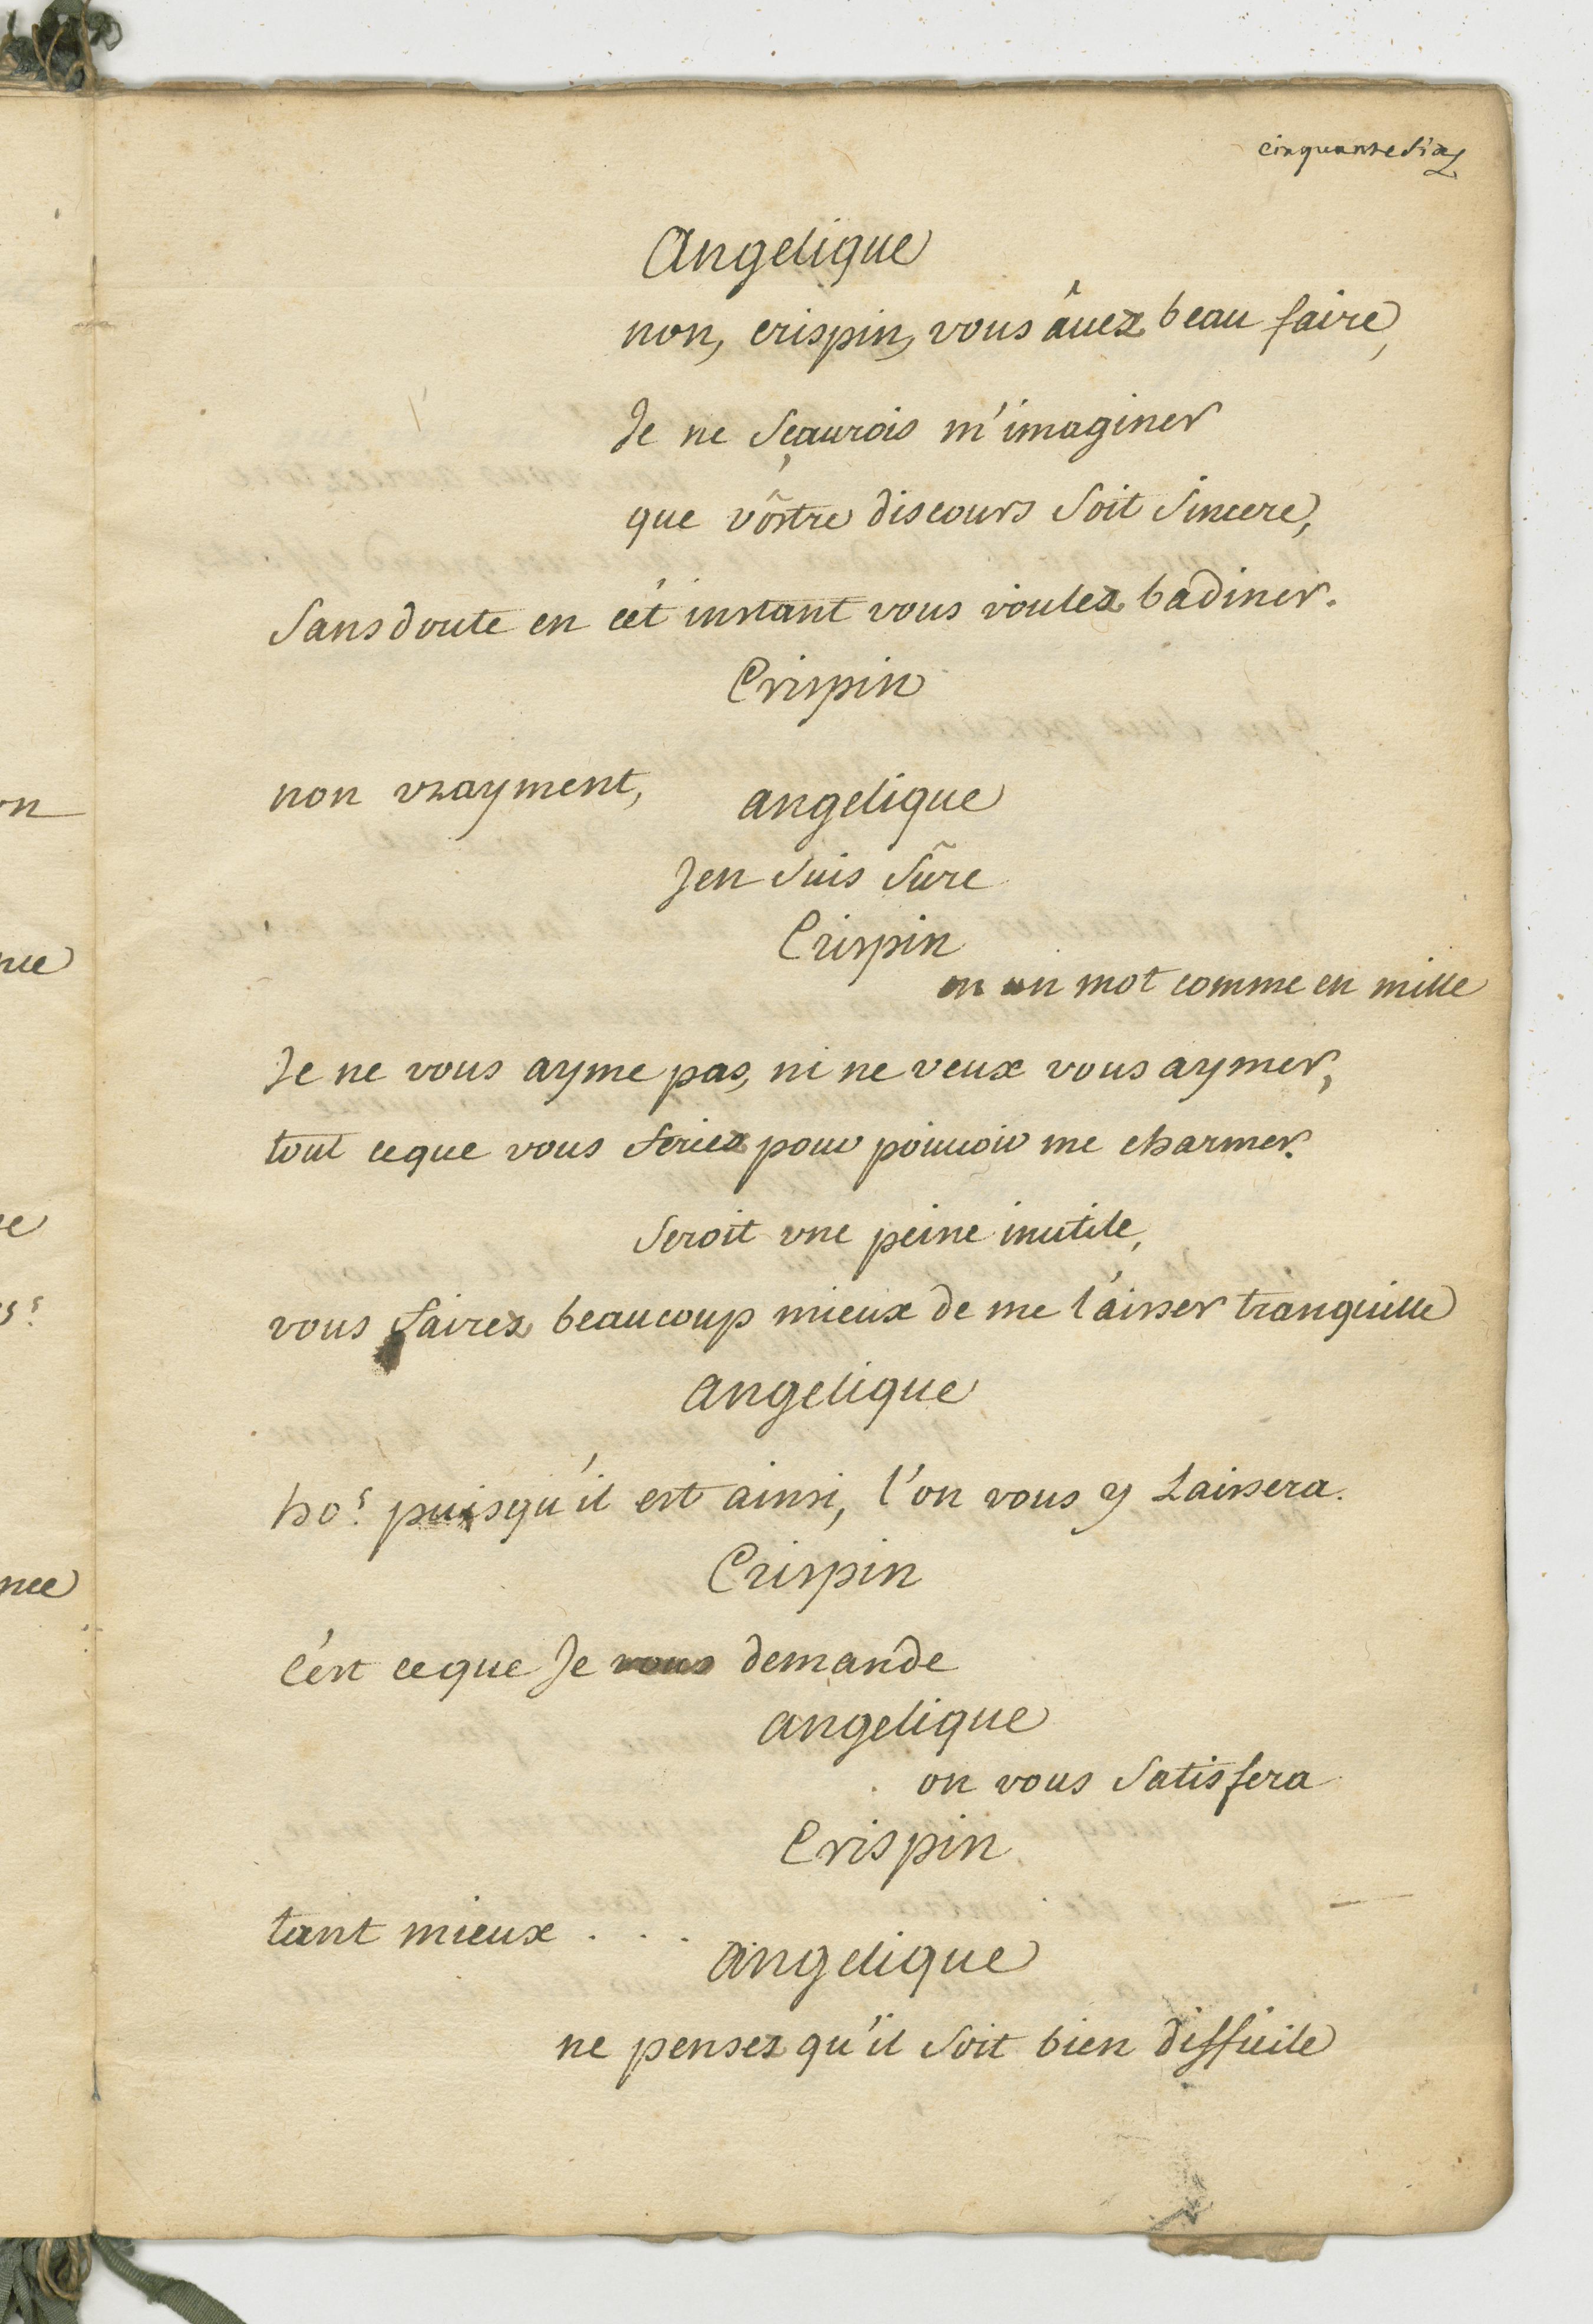 cinquante Six
Angelique
non, crispin, vous âuez beau faire,
Je ne sçaurois m'imaginer
que vôstre discours soit sincere,
sans doute en cét instant vous voulez badiner.
Crispin
non vrayment,
angelique
Jen suis sûre
Crispin
en un mot comme en mille
Je ne vous ayme pas, ni ne veux vous aymer,
tout ceque vous feriez pour pouuoir me charmer.
seroit vne peine inutile,
vous fairez beaucoup mieux de me l'aisser tranquille
angelique
ho! puisqu'il est ainsi, l'on vous y Laissera.
Crispin
c'est ceque Je vous demande
angelique
on vous satisfera
Crispin
tant mieux . . .
angelique
ne pensez qu'il soit bien difficile